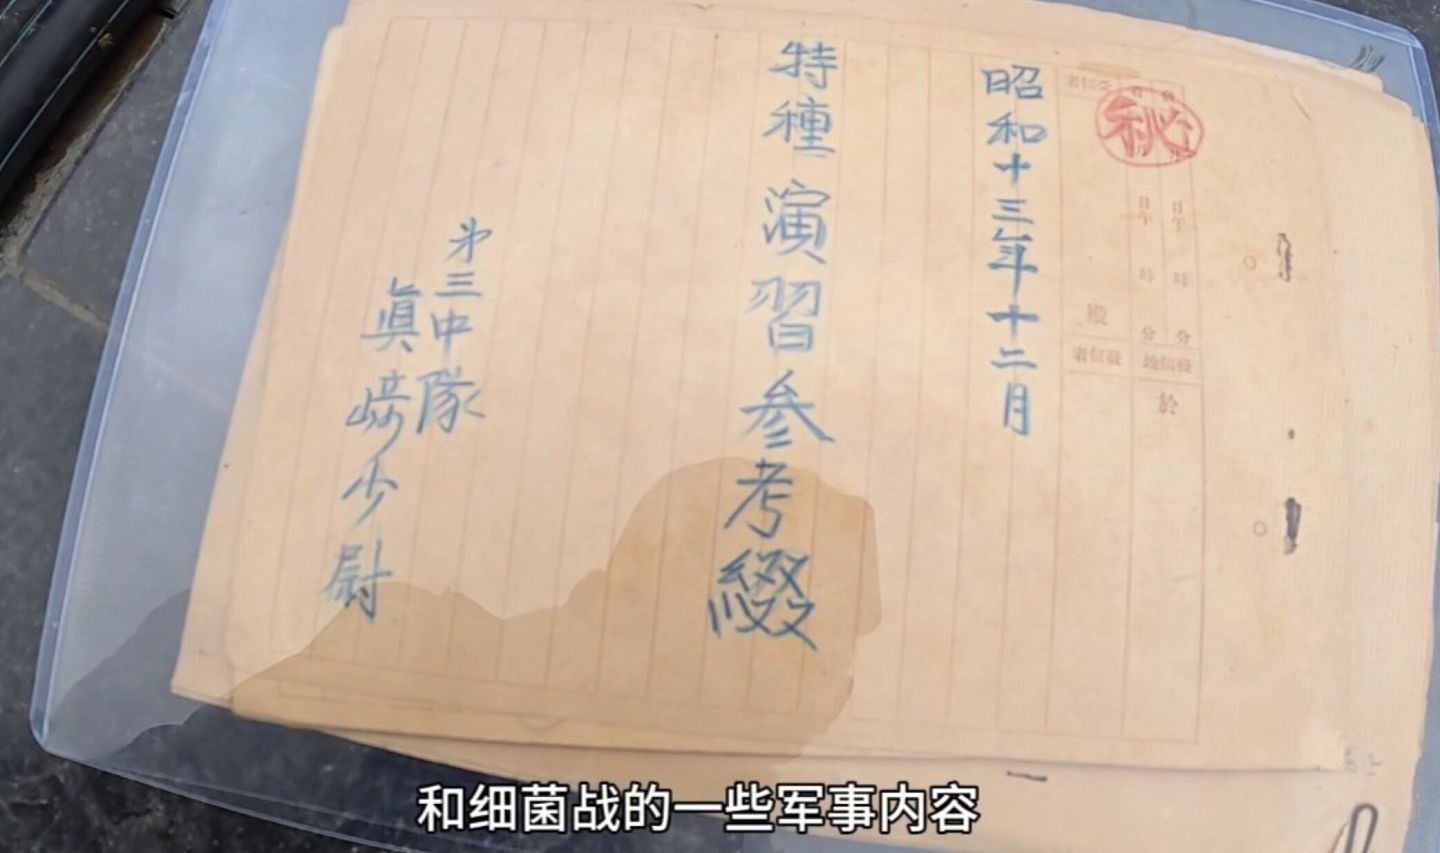 秘
日午 時 分
日午 時 分
發信地
於
受信者
殿
發信者
昭和十三年十二月
特種演習参考綴
第三中隊
眞崎少尉
和细菌战的一些军事内容